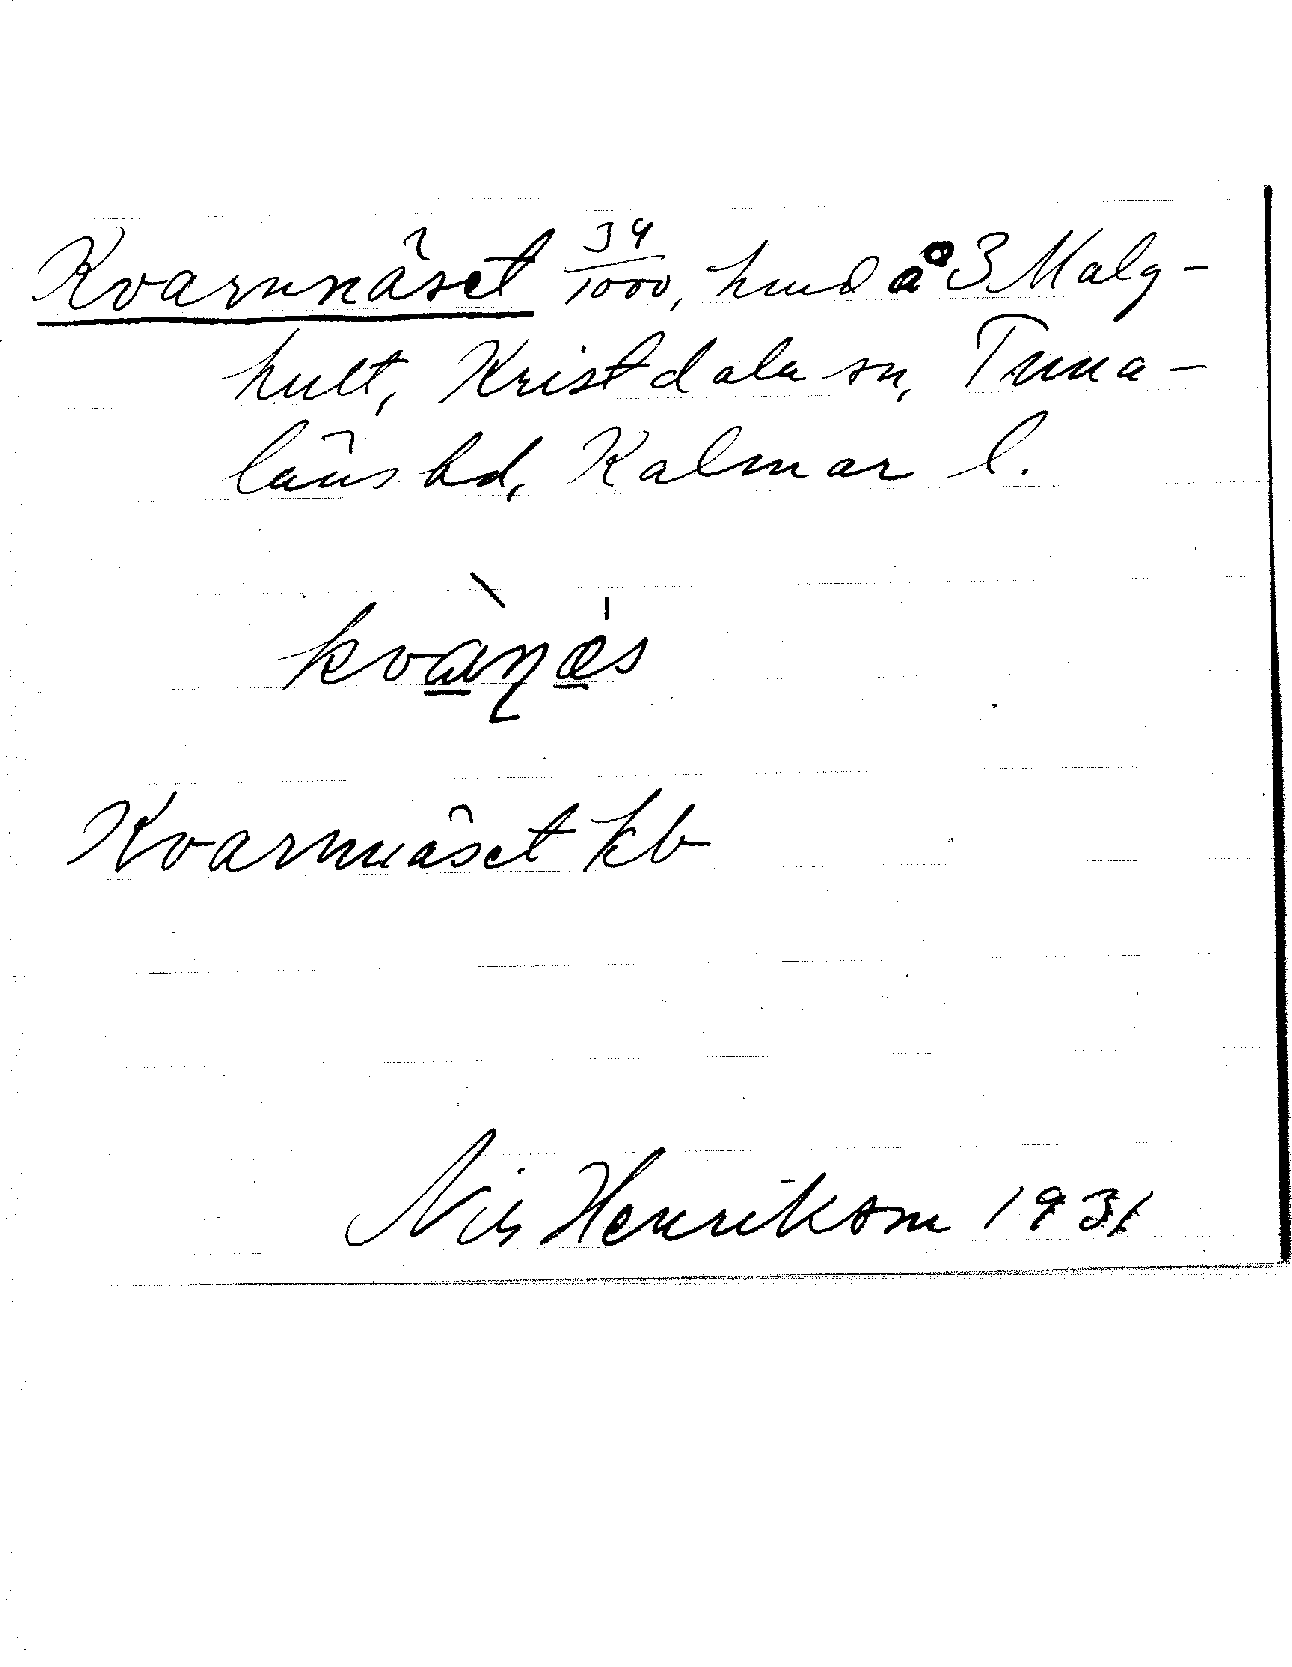 Kvarnnäset 34/1000, hmd å 3 Malg-
hult, Kristdala sn, Tuna-
läns hd, Kalmar l.
kvàɳæ̀s
Kvarnnäset kb
Nils Henrikson 1931